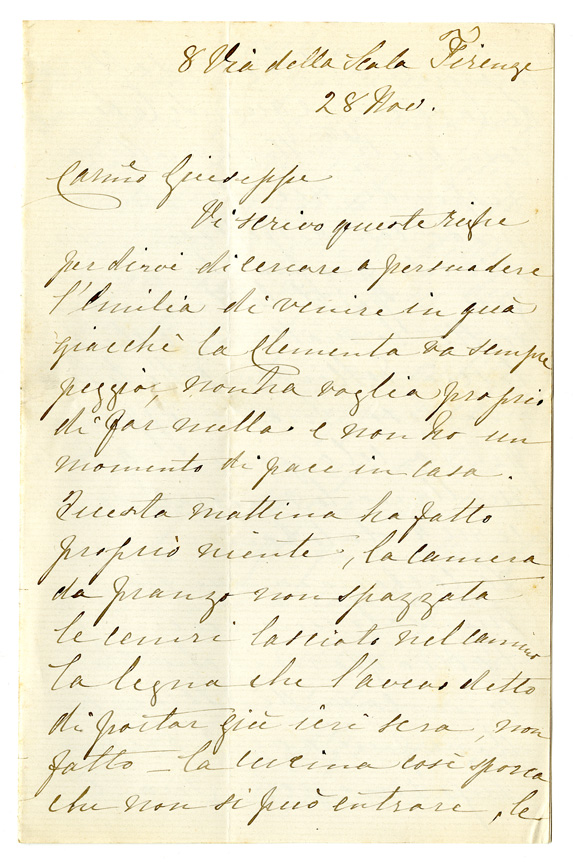 8 Via della Scala Firenze
28 Nov.
Carino Giuseppe
Vi scrivo queste righe
per dirvi di cercare a persuadere
l'Emilia di venire in quà
giacchè la Clementa va sempre
peggio, non ha voglia proprio
di far nulla. e non ho un
momento di pace in casa.
Questa mattina ha fatto
proprio niente, la camera
da pranzo non spazzata
le ceneri lasciate nel camino
la legna che l'aveva detto
di portar giù ieri sera, non
fatto - la cucina così sporca
che non si può entrare, le